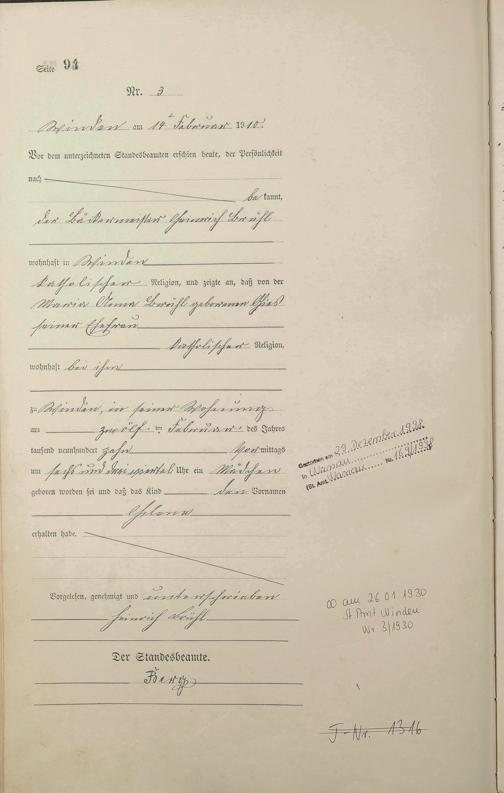 Seite 94
Nr. 3
Winden am 14 Februar 1910.
Vor dem unterzeichneten Standesbeamten erschien heute, der Persönlichkeit
nach
be kannt,
der Bäckermeister Heinrich Brühl
wohnhaft in Winden
katholischer Religion, und zeigte an, daß von der
Maria Anna Brühl geborenen
seiner Ehefrau
katholischer Religion,
wohnhaft bei ihm
zu Winden, in seiner Wohnung
am zwölf ten Februar des Jahres
tausend neunhundert zehn Vor mittags
um sechs und drei viertel Uhr ein Mädchen
geboren worden sei und daß das Kind den Vornamen
erhalten habe.
Vorgelesen, genehmigt und unterschrieben
Heinrich Brühl
Der Standesbeamte.
Gestorben am 29. Dezember
in
(St. Amt Nr.
∞ am 26 01 1930
St. Amt Winden
Nr 3/1930
J-Nr. 1316